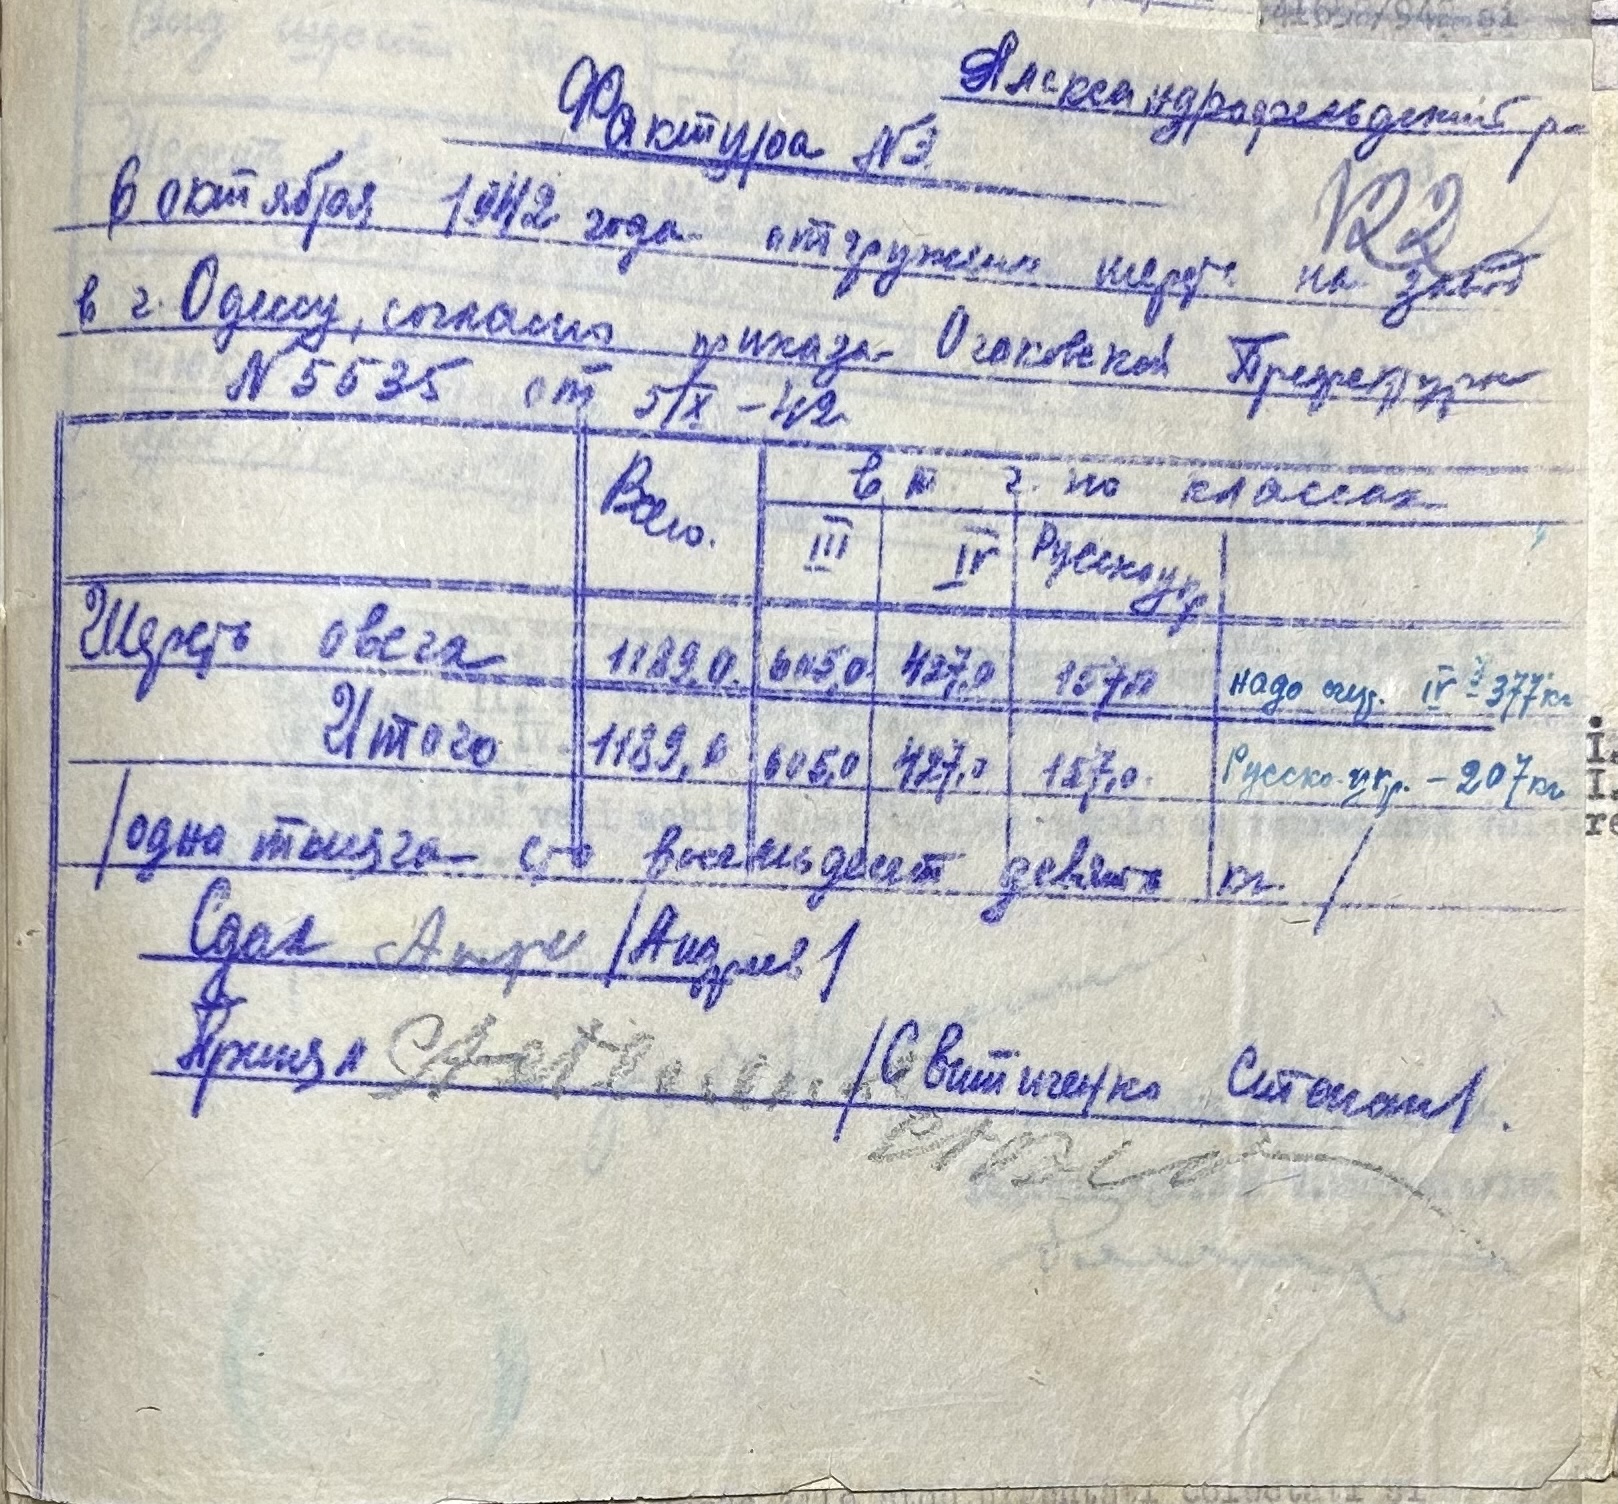 Александрофельдский р-
Фактура №3
122
6 октября 1942 года отгружено шерсть на завод
в г. Одессу, согласно приказа Очаковской Префектуры
N 5535 от 5/IX-42
Всего. в т ч. по классах
III IV Русскоукр
Шерсть овеча 1189,0. 605,0 427,0 157,0 надо счит. IV - 377кг
Итого 1189,0 605,0 427,0 157,0. Русско-укр. - 207кг
/одна тысяча сто восемьдесят девять кг. /
Сдал /Андреев/
Принял /Свитиченко Степан/.